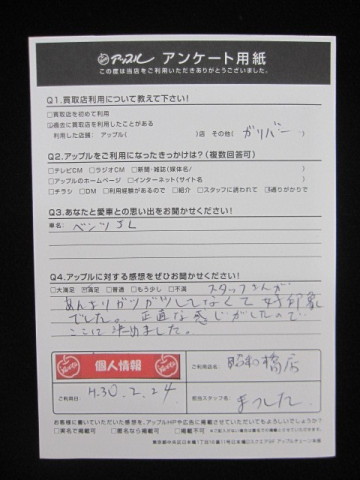 アップル アンケート用紙
この度は当店をご利用いただきありがとうございました。
Q1.買取店利用について教えて下さい!
□買取店を初めて利用
☑過去に買取店を利用したことがある
利用した店舗: アップル( )店 その他( ガリバー )
Q2.アップルをご利用になったきっかけは?(複数回答可)
□テレビCM □ラジオCM □新聞・雑誌(媒体名/ )
□アップルのホームページ □インターネット(サイト名 )
□チラシ □DM □利用経験があるので □紹介 □スタッフに誘われて ☑通りがかりで
Q3.あなたと愛車との思い出をお聞かせください!
車名: ベンツ
Q4.アップルに対する感想をぜひお聞かせください!
□大満足 ☑満足 □普通 □もう少し □不満 スタッフさんが
あんまりガツガツしてなくて好印象
でした。正直な感じがしたので
ここに決めました。
個人情報
ご利用店名: 昭和橋店
ご利用日 H.30.2.24
担当スタッフ名: ました
お客様に書いていただいた感想を、アップルHPや広告に掲載させていただいてもよろしいでしょうか?
□実名で掲載可 □匿名なら掲載可 □掲載不可